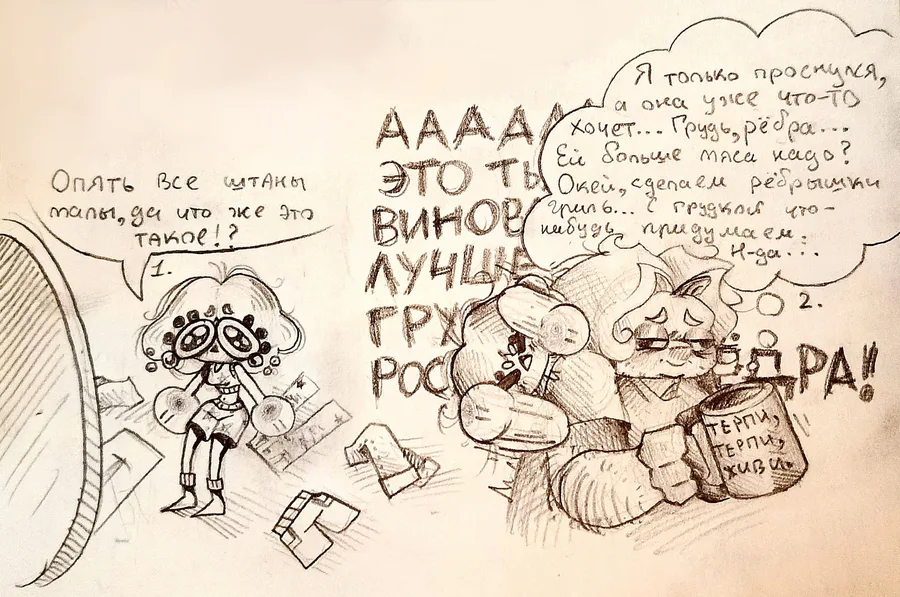 Опять все штаны
малы, да что же это
такое!?
1.
АААА
ЭТО ТЫ
ВИНОВ
ЛУЧШЕ
ГРУ
РОС
РА!!
Я только проснулся,
а она уже что-то
хочет... Грудь, рёбра...
Ей больше мяса надо?
Окей, сделаем рёбрышки
гриль... С грудкой что-
нибудь придумаем.
Н-да...
2.
ТЕРПИ,
ТЕРПИ,
ЖИВИ.